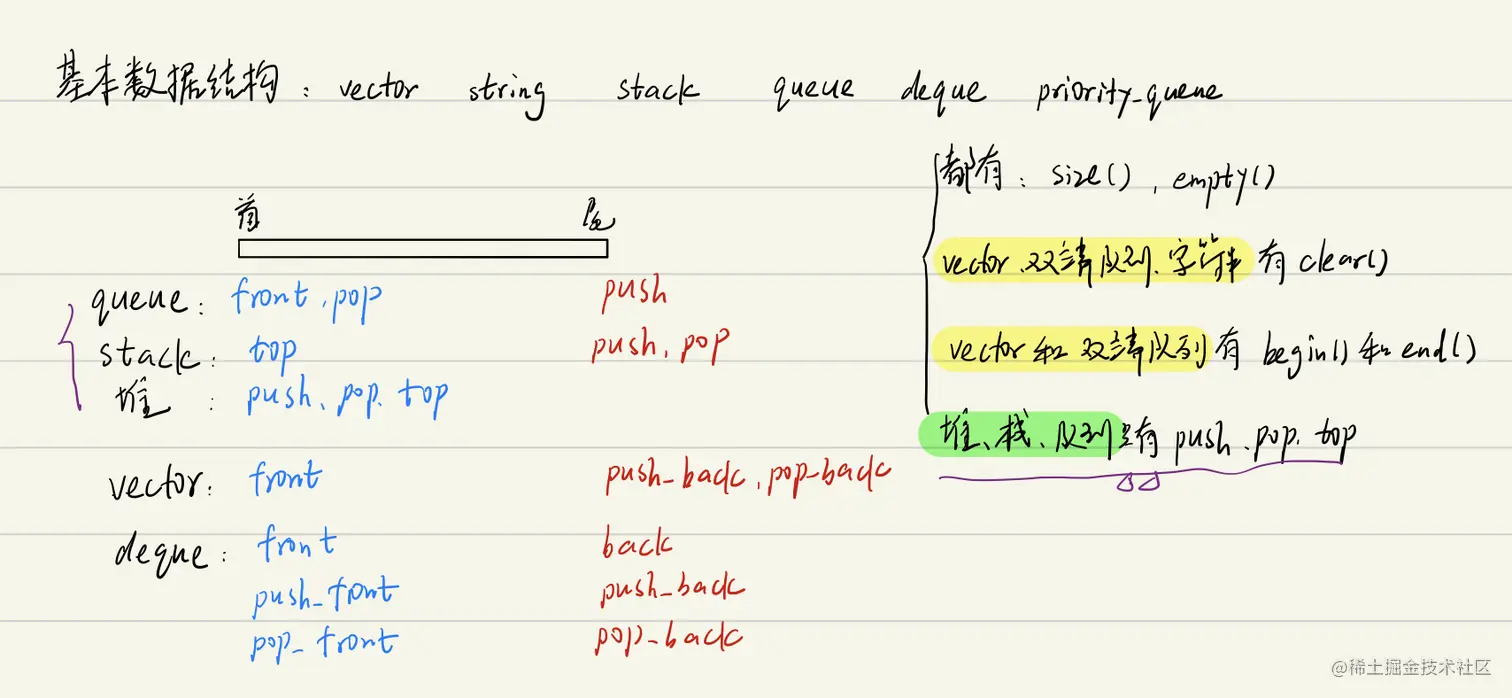 基本数据结构：vector string stack queue deque priority_queue
都有：size()，empty()
首 尾
vector、双端队列、字符串 有 clear()
queue：front、pop push
vector 和 双端队列 有 begin() 和 end()
stack：top push、pop
堆：push、pop、top
堆、栈、队列只有 push、pop、top
vector：front push_back、pop_back
deque：front back
push_front push_back
pop_front pop_back
@稀土掘金技术社区